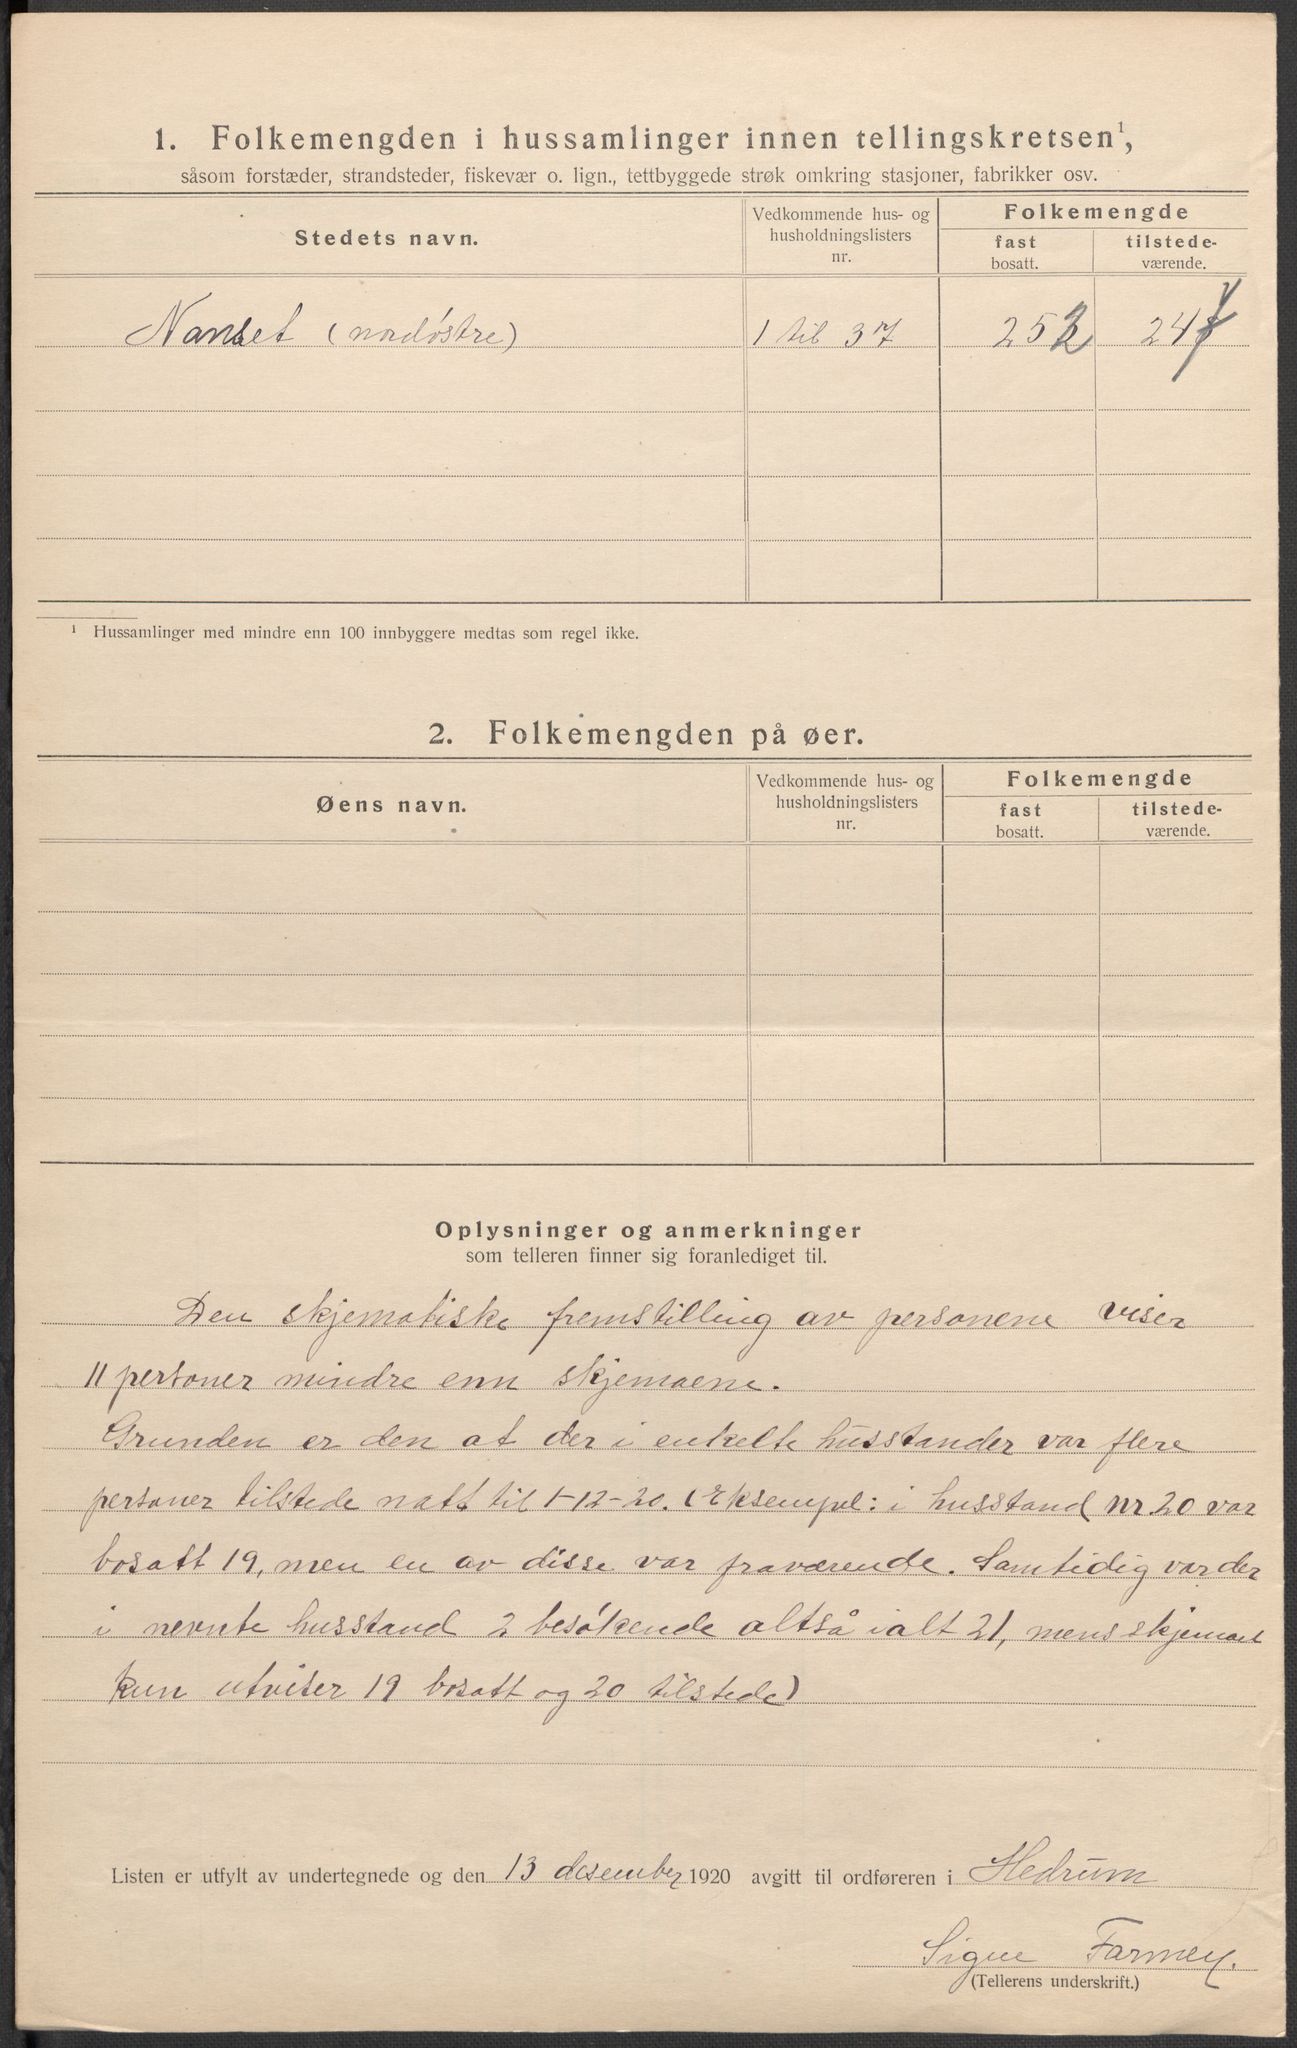 1. Folkemengden i hussamlinger innen tellingskretsen¹,
såsom forstæder, strandsteder, fiskevær o. lign., tettbyggede strøk omkring stasjoner, fabrikker osv.
Stedets navn.
Vedkommende hus- og
husholdningslisters
nr.
Folkemengde
fast
bosatt.
tilstede-
værende.
Nanset (nordöstre)
1 til 37
252
24
¹ Hussamlinger med mindre enn 100 innbyggere medtas som regel ikke.
2. Folkemengden på øer.
Øens navn.
Vedkommende hus- og
husholdningslisters
nr.
Folkemengde
fast
bosatt.
tilstede-
værende.
Oplysninger og anmerkninger
som telleren finner sig foranlediget til.
Den skjematiske fremstilling av personene viser
11 personer mindre enn skjemaene.
Grunden er den at der i enkelte husstander var flere
personer tilstede natt til 1-12-20. (Eksempel: i husstand nr. 20 var
bosatt 19, men en av disse var fraværende. Samtidig var der
i nevnte husstand 2 besökende altså ialt 21, mens skjemaet
kun utviser 19 bosatt og 20 tilstede)
Listen er utfylt av undertegnede og den 13 desember 1920 avgitt til ordføreren i Hedrum
Signe Farmen.
(Tellerens underskrift.)